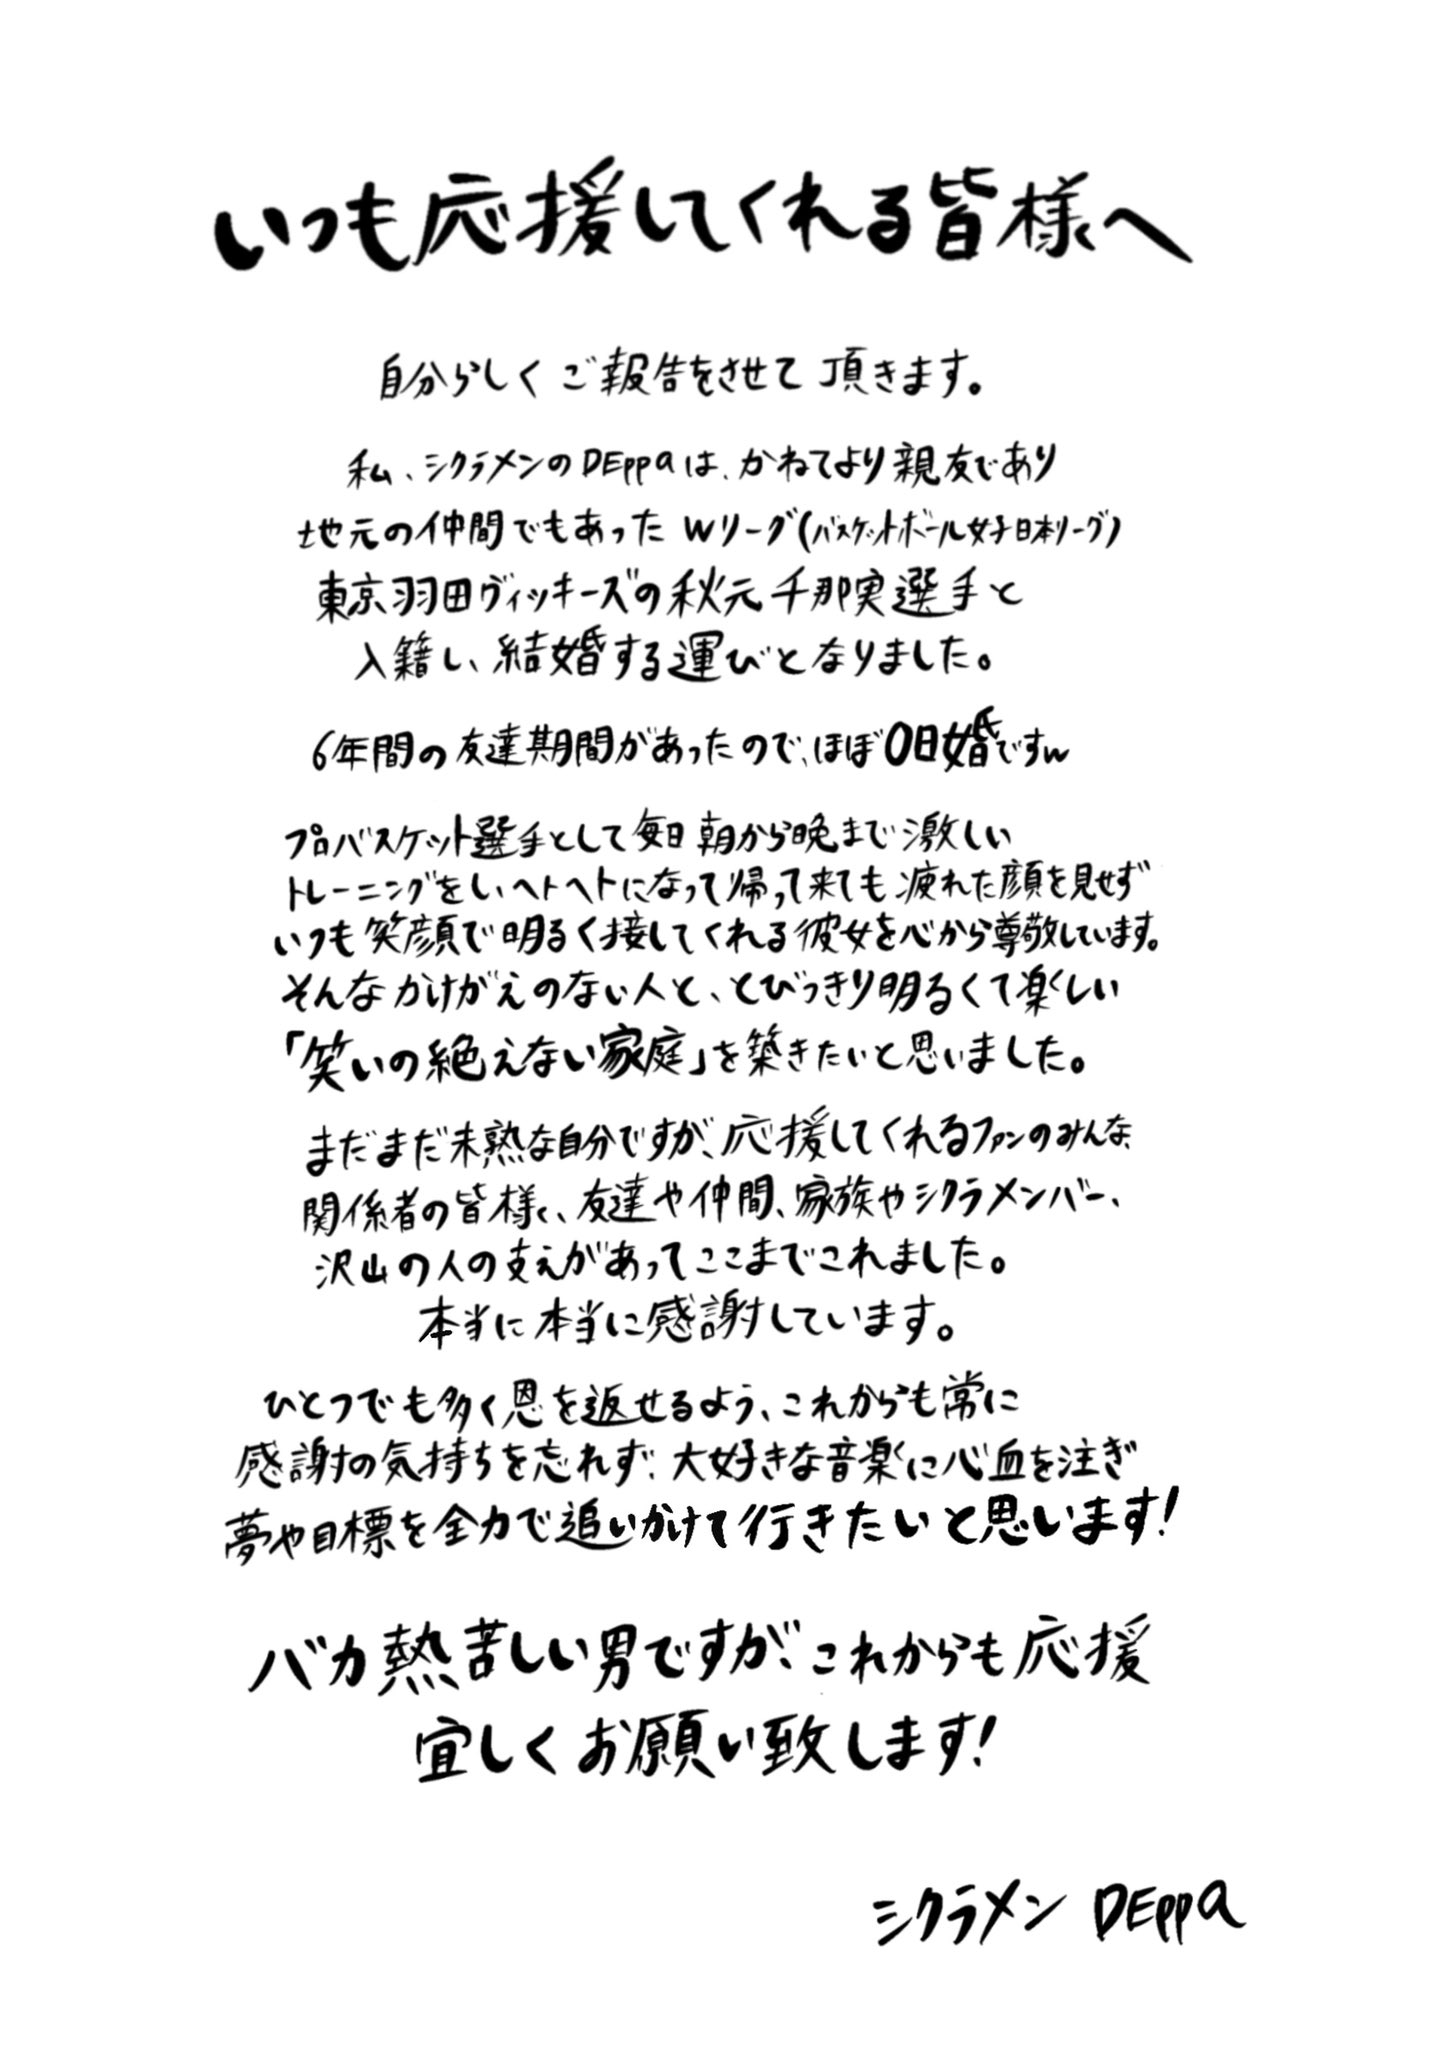 いつも応援してくれる皆様へ
自分らしくご報告をさせて頂きます。
私、シクラメンのDEppaは、かねてより親友であり
地元の仲間でもあったWリーグ(バスケットボール女子日本リーグ)
東京羽田ヴィッキーズの秋元千那実選手と
入籍し、結婚する運びとなりました。
6年間の友達期間があったので、ほぼ0日婚ですw
プロバスケット選手として毎日朝から晩まで激しい
トレーニングをし、ヘトヘトになって帰って来ても疲れた顔を見せず
いつも笑顔で明るく接してくれる彼女を心から尊敬しています。
そんなかけがえのない人と、とびっきり明るくて楽しい
「笑いの絶えない家庭」を築きたいと思いました。
まだまだ未熟な自分ですが、応援してくれるファンのみんな、
関係者の皆様、友達や仲間、家族やシクラメンバー、
沢山の人の支えがあってここまでこれました。
本当に本当に感謝しています。
ひとつでも多く恩を返せるよう、これからも常に
感謝の気持ちを忘れず、大好きな音楽に心血を注ぎ
夢や目標を全力で追いかけて行きたいと思います!
バカ熱苦しい男ですが、これからも応援
宜しくお願い致します!
シクラメン DEppa